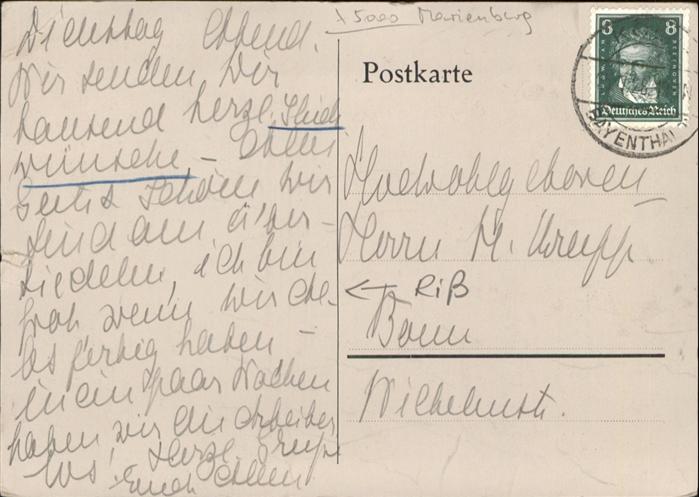 Dienstag Abend.
Wir senden Dir
tausend herzl. Glück
wünsche – Alles
geht schön wir
sind am über-
siedeln, ich bin
froh wenn wir
los fertig haben –
in ein paar Wochen
haben wir die Arbeiter
los, Herzl. Grüße
Euch Allen
x 5000 Marienburg
Postkarte
8 8
Deutsches Reich
BAYENTHAL
Hochwohlgeboren
Herrn H.
← Riß
Bonn
Wilhelmstr.